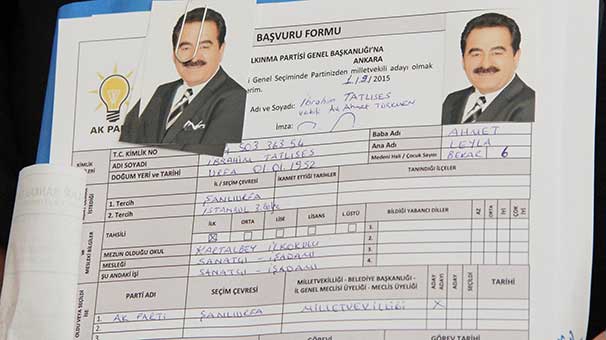 BAŞVURU FORMU
LKINMA PARTİSİ GENEL BAŞKANLIĞI'NA
ANKARA
Genel Seçiminde Partinizden milletvekili adayı olmak
/2015
AK PAR
Adı ve Soyadı: İbrahim TATLISES
vekili Av. Ahmet TÜRKMEN
İmza:
Baba Adı AHMET
Ana Adı LEYLA
Medeni Hali / Çocuk Sayısı BEKAR 6
T.C. KİMLİK NO 503 363 54
ADI SOYADI İBRAHİM TATLISES
DOĞUM YERİ ve TARİHİ URFA 01.01.1952
İL / SEÇİM ÇEVRESİ İKAMET ETTİĞİ TARİHLER TANINDIĞI İLÇELER
1. Tercih ŞANLIURFA
2. Tercih İSTANBUL
TAHSİLİ İLK ORTA LİSE LİSANS L.ÜSTÜ BİLDİĞİ YABANCI DİLLER AZ ORTA İYİ ÇOK İYİ
1.
2.
3.
4.
MEZUN OLDUĞU OKUL İLKOKULU
MESLEĞİ SANATÇI - İŞADAMI
ŞU ANDAKİ İŞİ SANATÇI - İŞADAMI
PARTİ ADI SEÇİM ÇEVRESİ MİLLETVEKİLLİĞİ - BELEDİYE BAŞKANLIĞI - İL GENEL MECLİS ÜYELİĞİ - MECLİS ÜYELİĞİ ADAY ADAYI ADAY SEÇİLDİ TARİHİ
1. AK PARTİ ŞANLIURFA MİLLETVEKİLLİĞİ X
2.
3.
GÖREVİ GÖREV TARİHİ